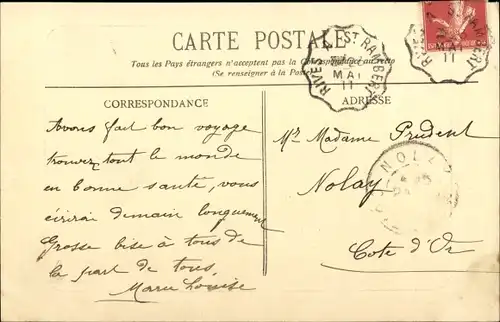 CARTE POSTALE
Tous les Pays étrangers n'acceptent pas la Correspondance au recto
(Se renseigner à la Poste)
RIVES A ST RAMBERT
MAI
11
CORRESPONDANCE
Avons fait bon voyage
trouvez tout le monde
en bonne santé, vous
écrirai demain longuement
Grosse bise à tous de
la part de tous,
Marie Louise
ADRESSE
Mr Madame Prudent
Nolay
Cote d'Or